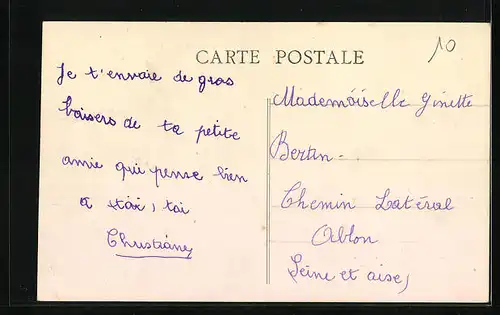 CARTE POSTALE
10
Je t'envoie de gros
baisers de ta petite
amie qui pense bien
a toi, toi
Christiane
Mademoiselle Ginette
Bertin -
Chemin Latéral
Ablon
Seine et oise,